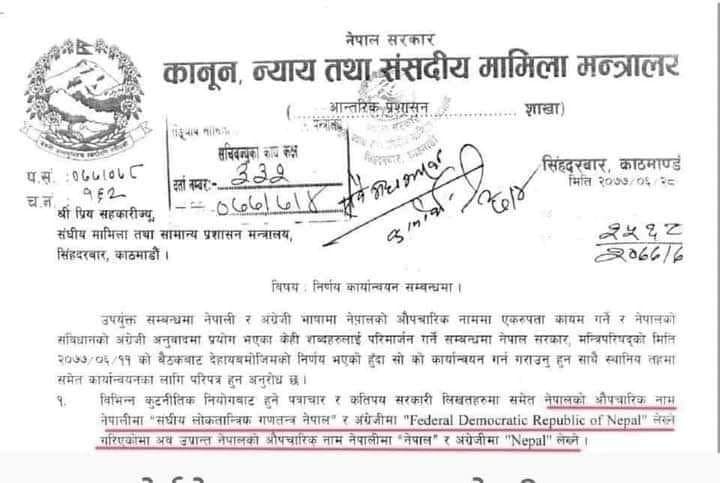 नेपाल सरकार
कानून, न्याय तथा संसदीय मामिला मन्त्रालय
( आन्तरिक प्रशासन शाखा)
सचिवज्यूको कार्य कक्ष
दर्ता नम्बर:- 332
प.सं.
च.नं. १६२
सिंहदरबार, काठमाण्डौ
मिति २०७७/०६/२८
श्री प्रिय सहकारीज्यू,
संघीय मामिला तथा सामान्य प्रशासन मन्त्रालय,
सिंहदरबार, काठमाडौं ।
विषय : निर्णय कार्यान्वयन सम्बन्धमा ।
उपर्युक्त सम्बन्धमा नेपाली र अंग्रेजी भाषामा नेपालको औपचारिक नाममा एकरुपता कायम गर्ने र नेपालको
संविधानको अंग्रेजी अनुवादमा प्रयोग भएका केही शब्दहरुलाई परिमार्जन गर्ने सम्बन्धमा नेपाल सरकार, मन्त्रिपरिषद्को मिति
२०७७/०६/११ को बैठकबाट देहायबमोजिमको निर्णय भएको हुँदा सो को कार्यान्वयन गर्न गराउनु हुन साथै स्थानिय तहमा
समेत कार्यान्वयनका लागि परिपत्र हुन अनुरोध छ ।
१. विभिन्न कुटनीतिक नियोगबाट हुने पत्राचार र कतिपय सरकारी लिखतहरुमा समेत नेपालको औपचारिक नाम
नेपालीमा "संघीय लोकतान्त्रिक गणतन्त्र नेपाल" र अंग्रेजीमा "Federal Democratic Republic of Nepal" लेख्ने
गरिएकोमा अब उप्रान्त नेपालको औपचारिक नाम नेपालीमा "नेपाल" र अंग्रेजीमा "Nepal" लेख्ने ।